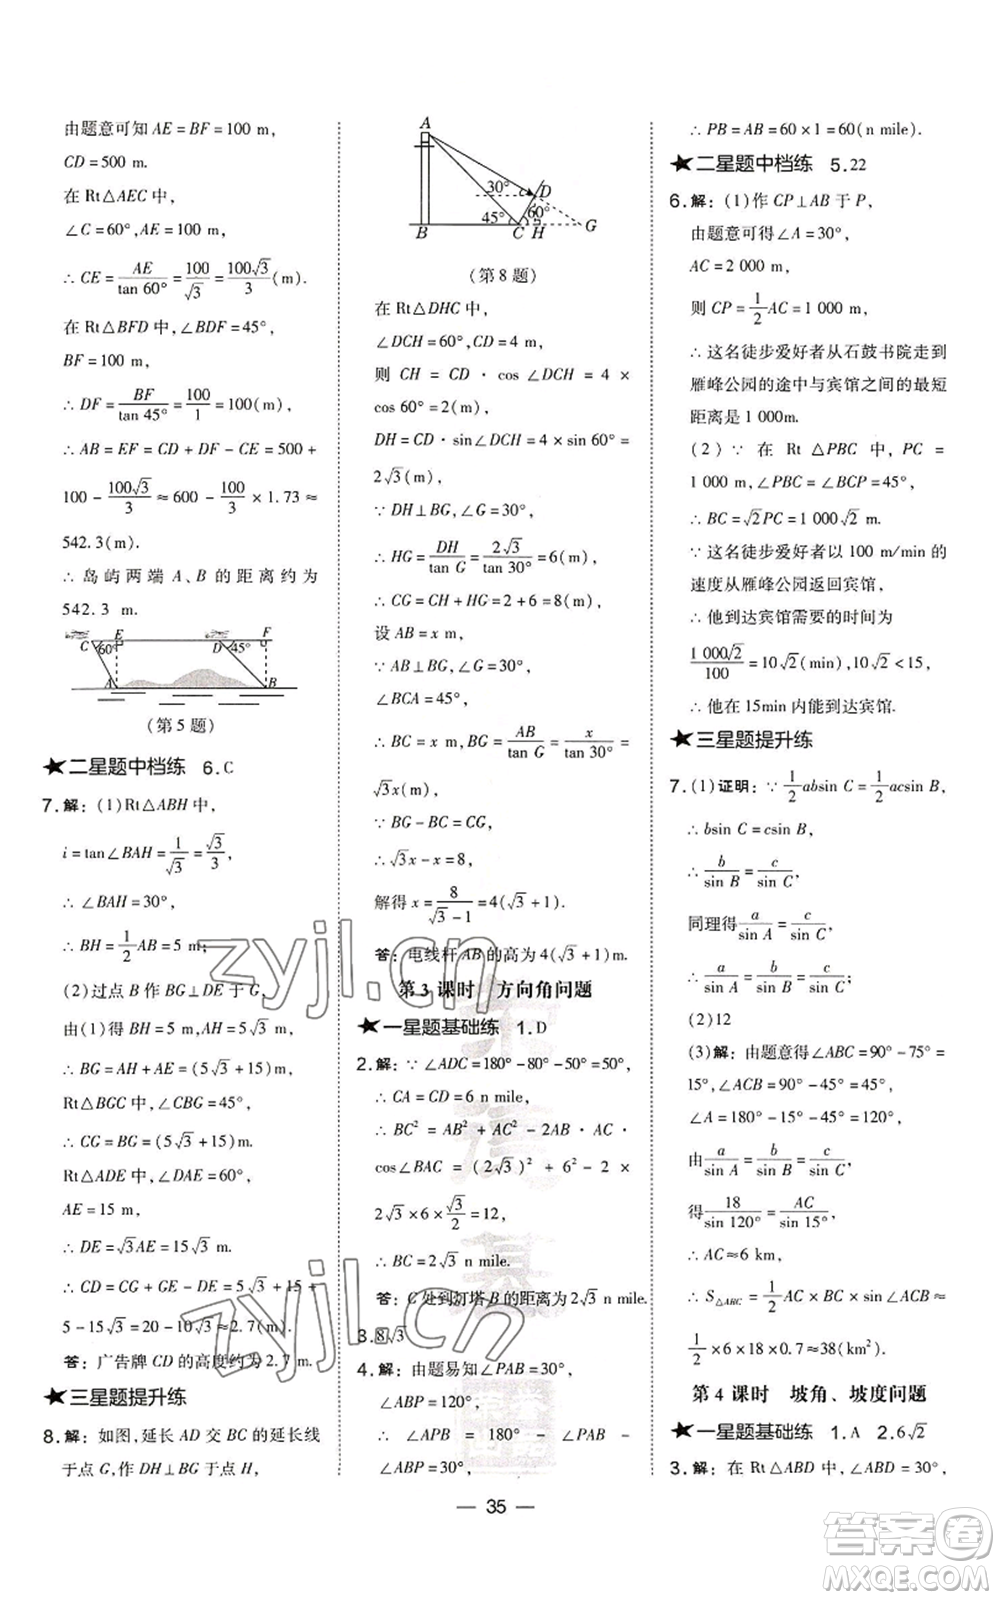 由题意可知 AE = BF = 100 m,
CD = 500 m.
在 Rt△AEC 中,
∠C = 60°, AE = 100 m,
∴ CE = AE/tan 60° = 100/√3 = 100√3/3 (m).
在 Rt△BFD 中, ∠BDF = 45°,
BF = 100 m,
∴ DF = BF/tan 45° = 100/1 = 100(m),
∴ AB = EF = CD + DF - CE = 500 +
100 - 100√3/3 ≈ 600 - 100/3 × 1.73 ≈
542.3(m).
∴ 岛屿两端 A、B 的距离约为
542.3 m.
C 60° E D 45° F
A B
(第5题)
★二星题中档练 6.C
7.解: (1)Rt△ABH 中,
i = tan∠BAH = 1/√3 = √3/3,
∴ ∠BAH = 30°,
∴ BH = 1/2 AB = 5 m;
(2)过点 B 作 BG⊥DE 于 G,
由(1)得 BH = 5 m, AH = 5√3 m,
∴ BG = AH + AE = (5√3 + 15) m,
Rt△BGC 中, ∠CBG = 45°,
∴ CG = BG = (5√3 + 15) m.
Rt△ADE 中, ∠DAE = 60°,
AE = 15 m,
∴ DE = √3AE = 15√3 m.
∴ CD = CG + GE - DE = 5√3 + 15 +
5 - 15√3 = 20 - 10√3 ≈ 2.7(m).
答: 广告牌 CD 的高度约为 2.7 m.
★三星题提升练
8.解: 如图,延长 AD 交 BC 的延长线
于点 G,作 DH⊥BG 于点 H,
A
30° D
45° 60°
B C H G
(第8题)
在 Rt△DHC 中,
∠DCH = 60°, CD = 4 m,
则 CH = CD · cos ∠DCH = 4 ×
cos 60° = 2(m),
DH = CD · sin∠DCH = 4 × sin 60° =
2√3(m),
∵ DH⊥BG, ∠G = 30°,
∴ HG = DH/tan G = 2√3/tan 30° = 6(m),
∴ CG = CH + HG = 2 + 6 = 8(m),
设 AB = x m,
∵ AB⊥BG, ∠G = 30°,
∠BCA = 45°,
∴ BC = x m, BG = AB/tan G = x/tan 30° =
√3x(m),
∵ BG - BC = CG,
∴ √3x - x = 8,
解得 x = 8/(√3 - 1) = 4(√3 + 1).
答: 电线杆 AB 的高为 4(√3 + 1)m.
第3课时 方向角问题
★一星题基础练 1.D
2.解: ∵ ∠ADC = 180° - 80° - 50° = 50°,
∴ CA = CD = 6 n mile,
∴ BC² = AB² + AC² - 2AB · AC ·
cos∠BAC = (2√3)² + 6² - 2 ×
2√3 × 6 × √3/2 = 12,
∴ BC = 2√3 n mile.
答: C 处到灯塔 B 的距离为 2√3 n mile.
3.8√3
4.解: 由题易知∠PAB = 30°,
∠ABP = 120°,
∴ ∠APB = 180° - ∠PAB -
∠ABP = 30°,
∴ PB = AB = 60 × 1 = 60(n mile).
★二星题中档练 5.22
6.解: (1)作 CP⊥AB 于 P,
由题意可得∠A = 30°,
AC = 2 000 m,
则 CP = 1/2 AC = 1 000 m,
∴ 这名徒步爱好者从石鼓书院走到
雁峰公园的途中与宾馆之间的最短
距离是 1 000m.
(2) ∵ 在 Rt △PBC 中, PC =
1 000 m, ∠PBC = ∠BCP = 45°,
∴ BC = √2PC = 1 000√2 m.
∵ 这名徒步爱好者以 100 m/min 的
速度从雁峰公园返回宾馆,
∴ 他到达宾馆需要的时间为
1 000√2/100 = 10√2(min), 10√2 < 15,
∴ 他在 15min 内能到达宾馆.
★三星题提升练
7.(1)证明: ∵ 1/2 absin C = 1/2 acsin B,
∴ bsin C = csin B,
∴ b/sin B = c/sin C,
同理得 a/sin A = c/sin C,
∴ a/sin A = b/sin B = c/sin C.
(2)12
(3)解: 由题意得∠ABC = 90° - 75° =
15°, ∠ACB = 90° - 45° = 45°,
∠A = 180° - 15° - 45° = 120°,
由 a/sin A = b/sin B = c/sin C,
得 18/sin 120° = AC/sin 15°,
∴ AC ≈ 6 km,
∴ S△ABC = 1/2 AC × BC × sin C ≈
1/2 × 6 × 18 × 0.7 ≈ 38(km²).
第4课时 坡角、坡度问题
★一星题基础练 1.A 2.6√2
3.解: 在 Rt△ABD 中, ∠ABD = 30°,
— 35 —
zyjl.cn
zyjl.cn
答案圈
MXQE.COM